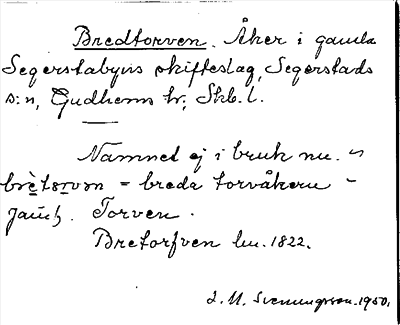 Bredtorven. Åker i gamla
Segerstabyns skifteslag, Segerstads
s:n, Gudhems hd, Skb. l.
Namnet ej i bruk nu. ~
brètorvən = breda torvåkern -
Jämf. Torven.
Bretorfven lm. 1822.
J. M. Svenungsson. 1950.